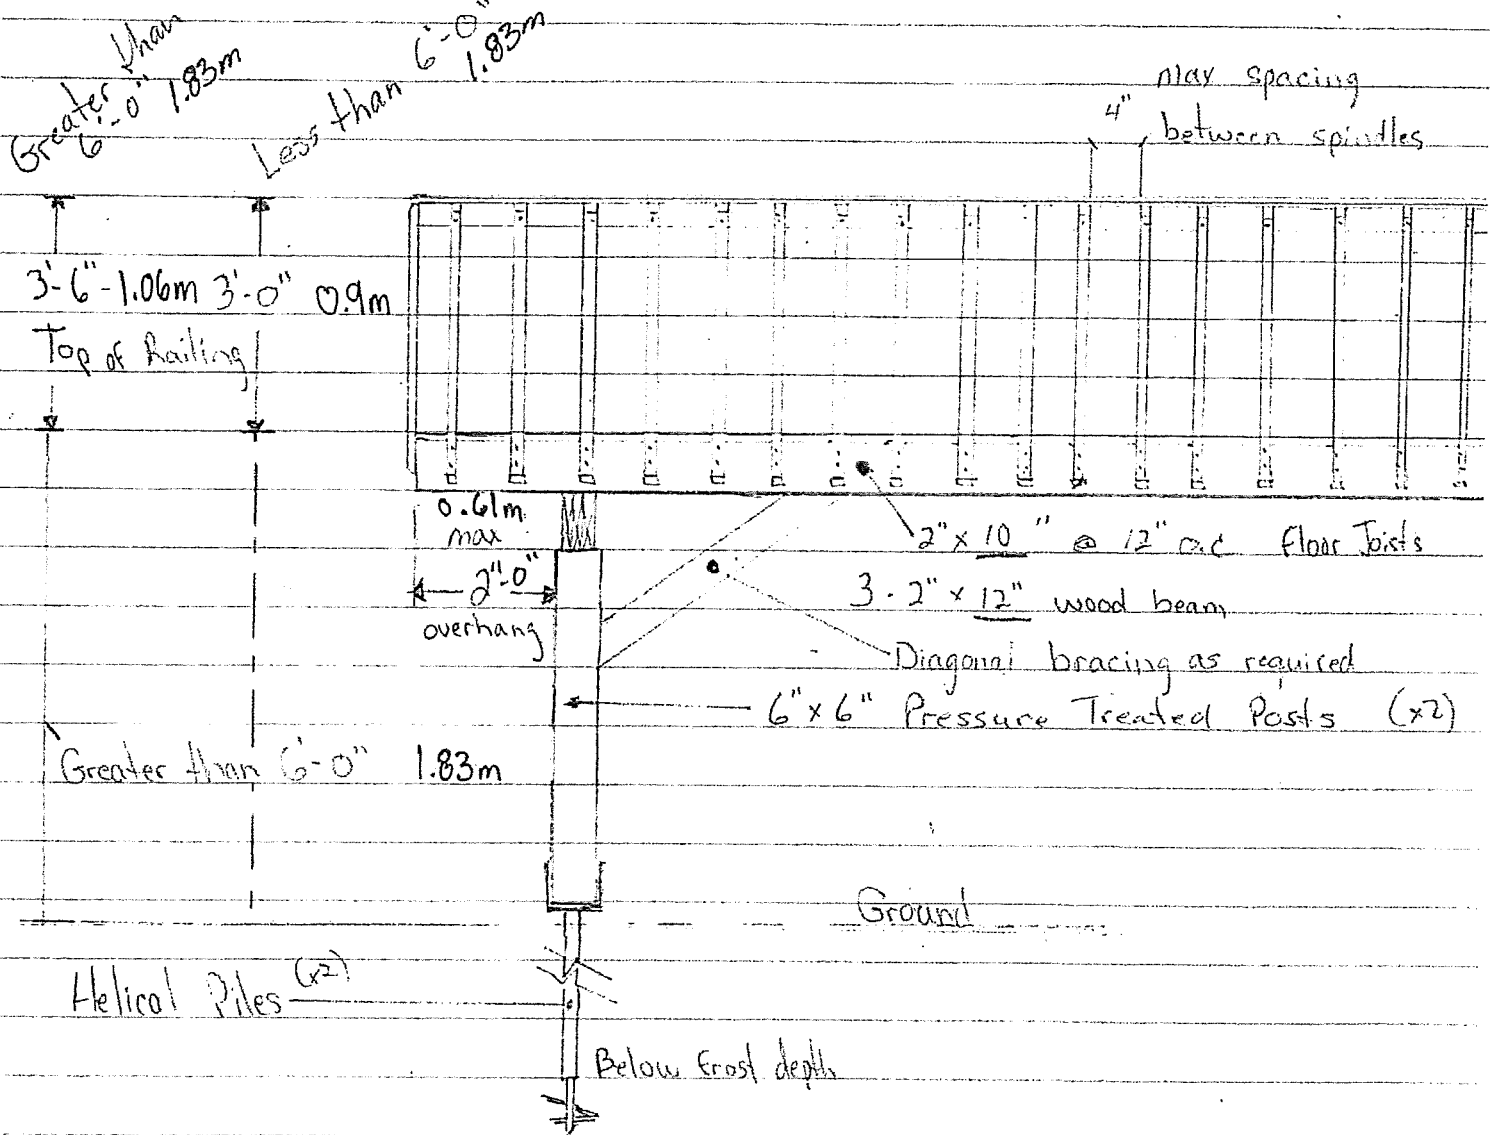 Greater than
6'-0" 1.83m
Less than 6'-0"
1.83m
max spacing
4" between spindles
3'-6"-1.06m 3'-0" 0.9m
Top of Railing
0.61m
max
2"-0"
overhang
2" x 10" @ 12" o.c Floor Joists
3 - 2" x 12" wood beam
Diagonal bracing as required
6" x 6" Pressure Treated Posts (x2)
Greater than 6'-0" 1.83m
Ground
Helical Piles (x2)
Below frost depth